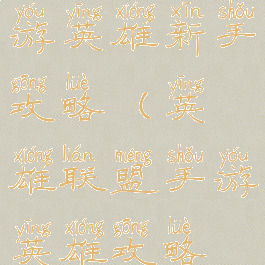 yóu yīng xióng xīn shǒu
游英雄新手
gōng lüè yīng
攻略(英
xióng lián méng shǒu yóu
雄联盟手游
yīng xióng gōng lüè
英雄攻略